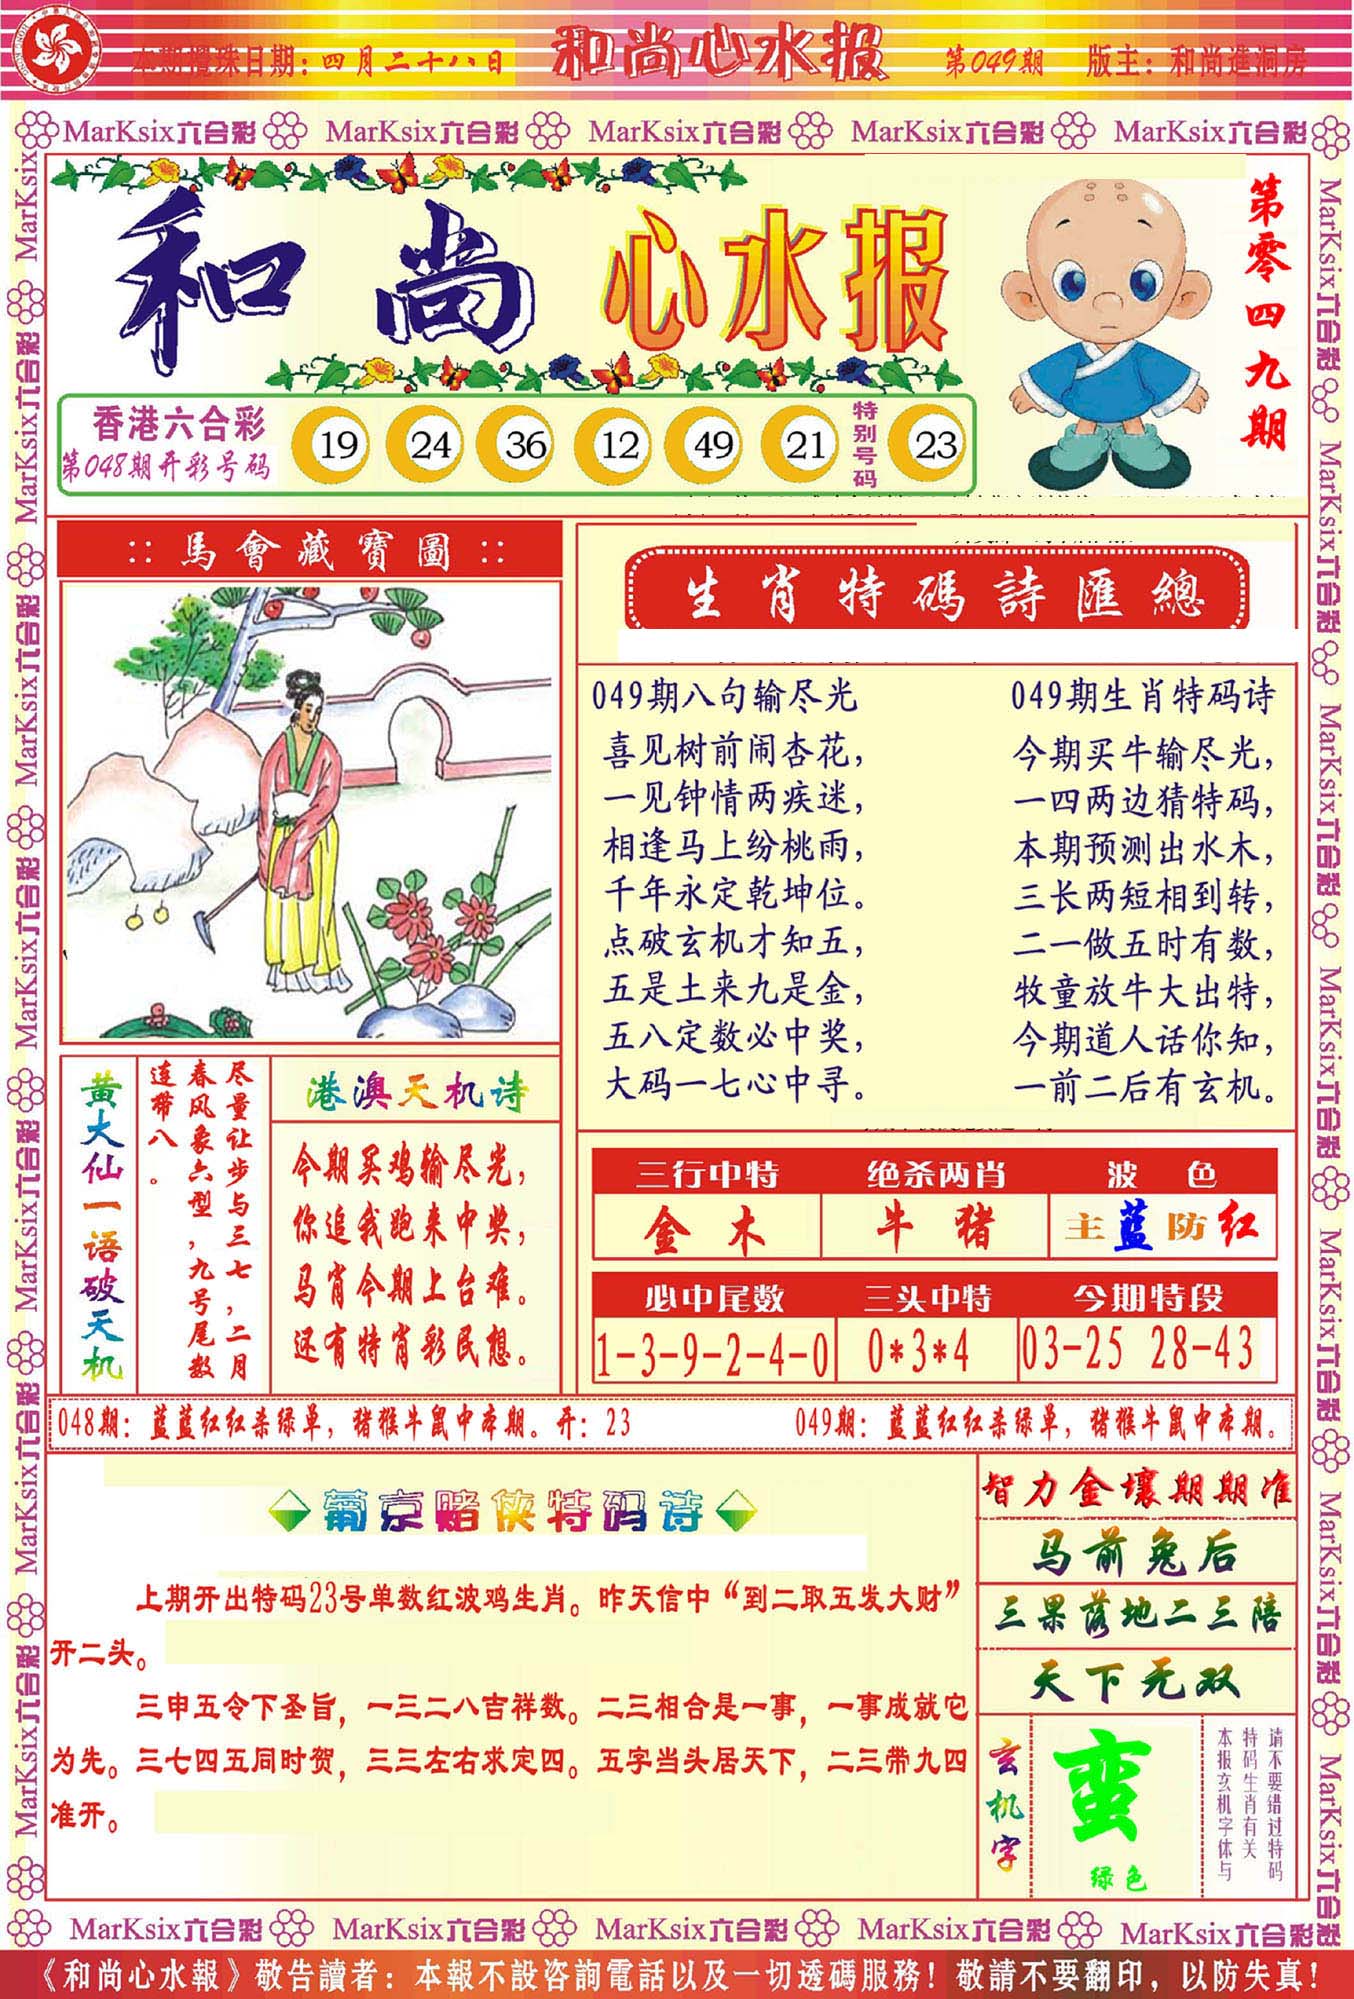 本期攪珠日期：四月二十八日
和尚心水报
第049期
版主：和尚進洞房
MarKsix六合彩 MarKsix六合彩 MarKsix六合彩 MarKsix六合彩 MarKsix六合彩
和尚心水报
第零四九期
香港六合彩
第048期开彩号码
19 24 36 12 49 21
特别号码
23
::馬會藏寶圖::
生肖特碼詩匯總
049期八句输尽光，
喜见树前闹杏花，
一见钟情两疾迷，
相逢马上纷桃雨，
千年永定乾坤位。
点破玄机才知五，
五是土来九是金，
五八定数必中奖，
大码一七心中寻。
049期生肖特码诗
今期买牛输尽光，
一四两边猜特码，
本期预测出水木，
三长两短相到转，
二一做五时有数，
牧童放牛大出特，
今期道人话你知，
一前二后有玄机。
黄大仙一语破天机
尽量让步与三七，二月
春风象六型，九号尾数
连带八。
港澳天机诗
今期买鸡输尽光，
你追我跑来中奖，
马肖今期上台难。
还有特肖彩民想。
三行中特
金 木
绝杀两肖
牛 猪
波 色
主蓝防红
必中尾数
1-3-9-2-4-0
三头中特
0*3*4
今期特段
03-25 28-43
048期：蓝蓝红红杀绿单，猪猴牛鼠中本期。开：23
049期：蓝蓝红红杀绿单，猪猴牛鼠中本期。
葡京赌侠特码诗
上期开出特码23号单数红波鸡生肖。昨天信中“到二取五发大财”
开二头。
三申五令下圣旨，一三二八吉祥数。二三相合是一事，一事成就它
为先。三七四五同时贺，三三左右求定四。五字当头居天下，二三带九四
准开。
智力金壤期期准
马前兔后
三果落地二三陪
天下无双
玄机字
蛮
绿色
请不要错过特码
特码生肖有关
本报玄机字体与
MarKsix六合彩 MarKsix六合彩 MarKsix六合彩 MarKsix六合彩 MarKsix六合彩
《和尚心水報》敬告讀者：本報不設咨詢電話以及一切透碼服務！敬請不要翻印，以防失真！